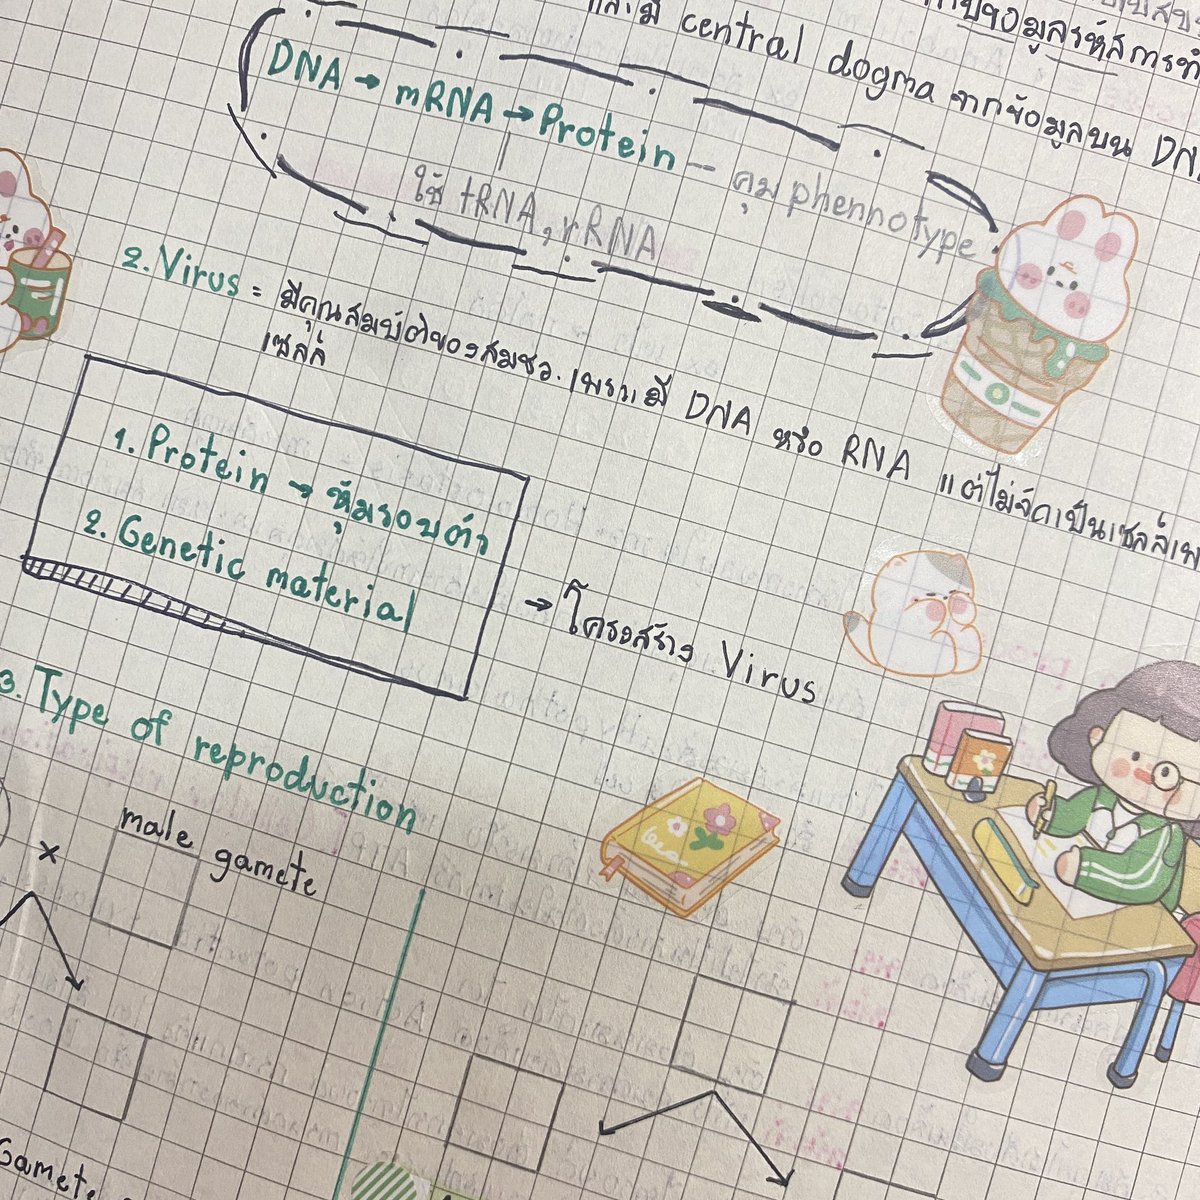 และมี central dogma จากข้อมูลบน DNA
DNA → mRNA → Protein — คุม phennotype
ใช้ tRNA, rRNA
2. Virus = มีคุณสมบัติของสมชว. เพราะมี DNA หรือ RNA แต่ไม่จัดเป็นเซลล์เพ
เซลล์
1. Protein → หุ้มรอบตัว
2. Genetic material
→ โครงสร้าง Virus
3. Type of reproduction
× male gamete
Gamete